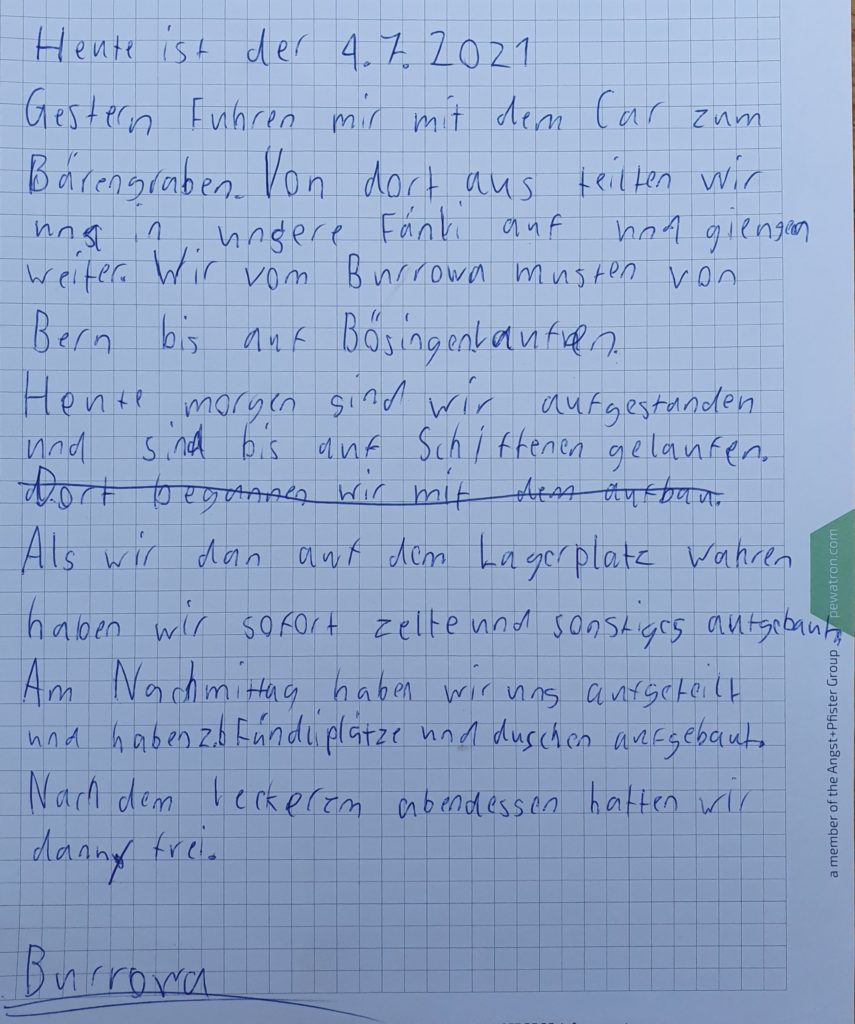 Heute ist der 4.7.2021
Gestern Fuhren mir mit dem Car zum
Bärengraben. Von dort aus teilten wir
uns in unsere Fänli auf und giengen
weiter. Wir vom Burrowa musten von
Bern bis auf Bösingen laufen.
Heute morgen sind wir aufgestanden
und sind bis auf Schiffenen gelaufen.
Dort begannen wir mit dem aufbau.
Als wir dan auf dem Lagerplatz wahren
haben wir sofort zelte und sonstiges aufgebaut,
Am Nachmittag haben wir uns aufgeteilt
und haben z.b Fändliplätze und duschen aufgebaut.
Nach dem leckerem abendessen hatten wir
dann frei.
Burrowa
a member of the Angst+Pfister Group
pewatron.com